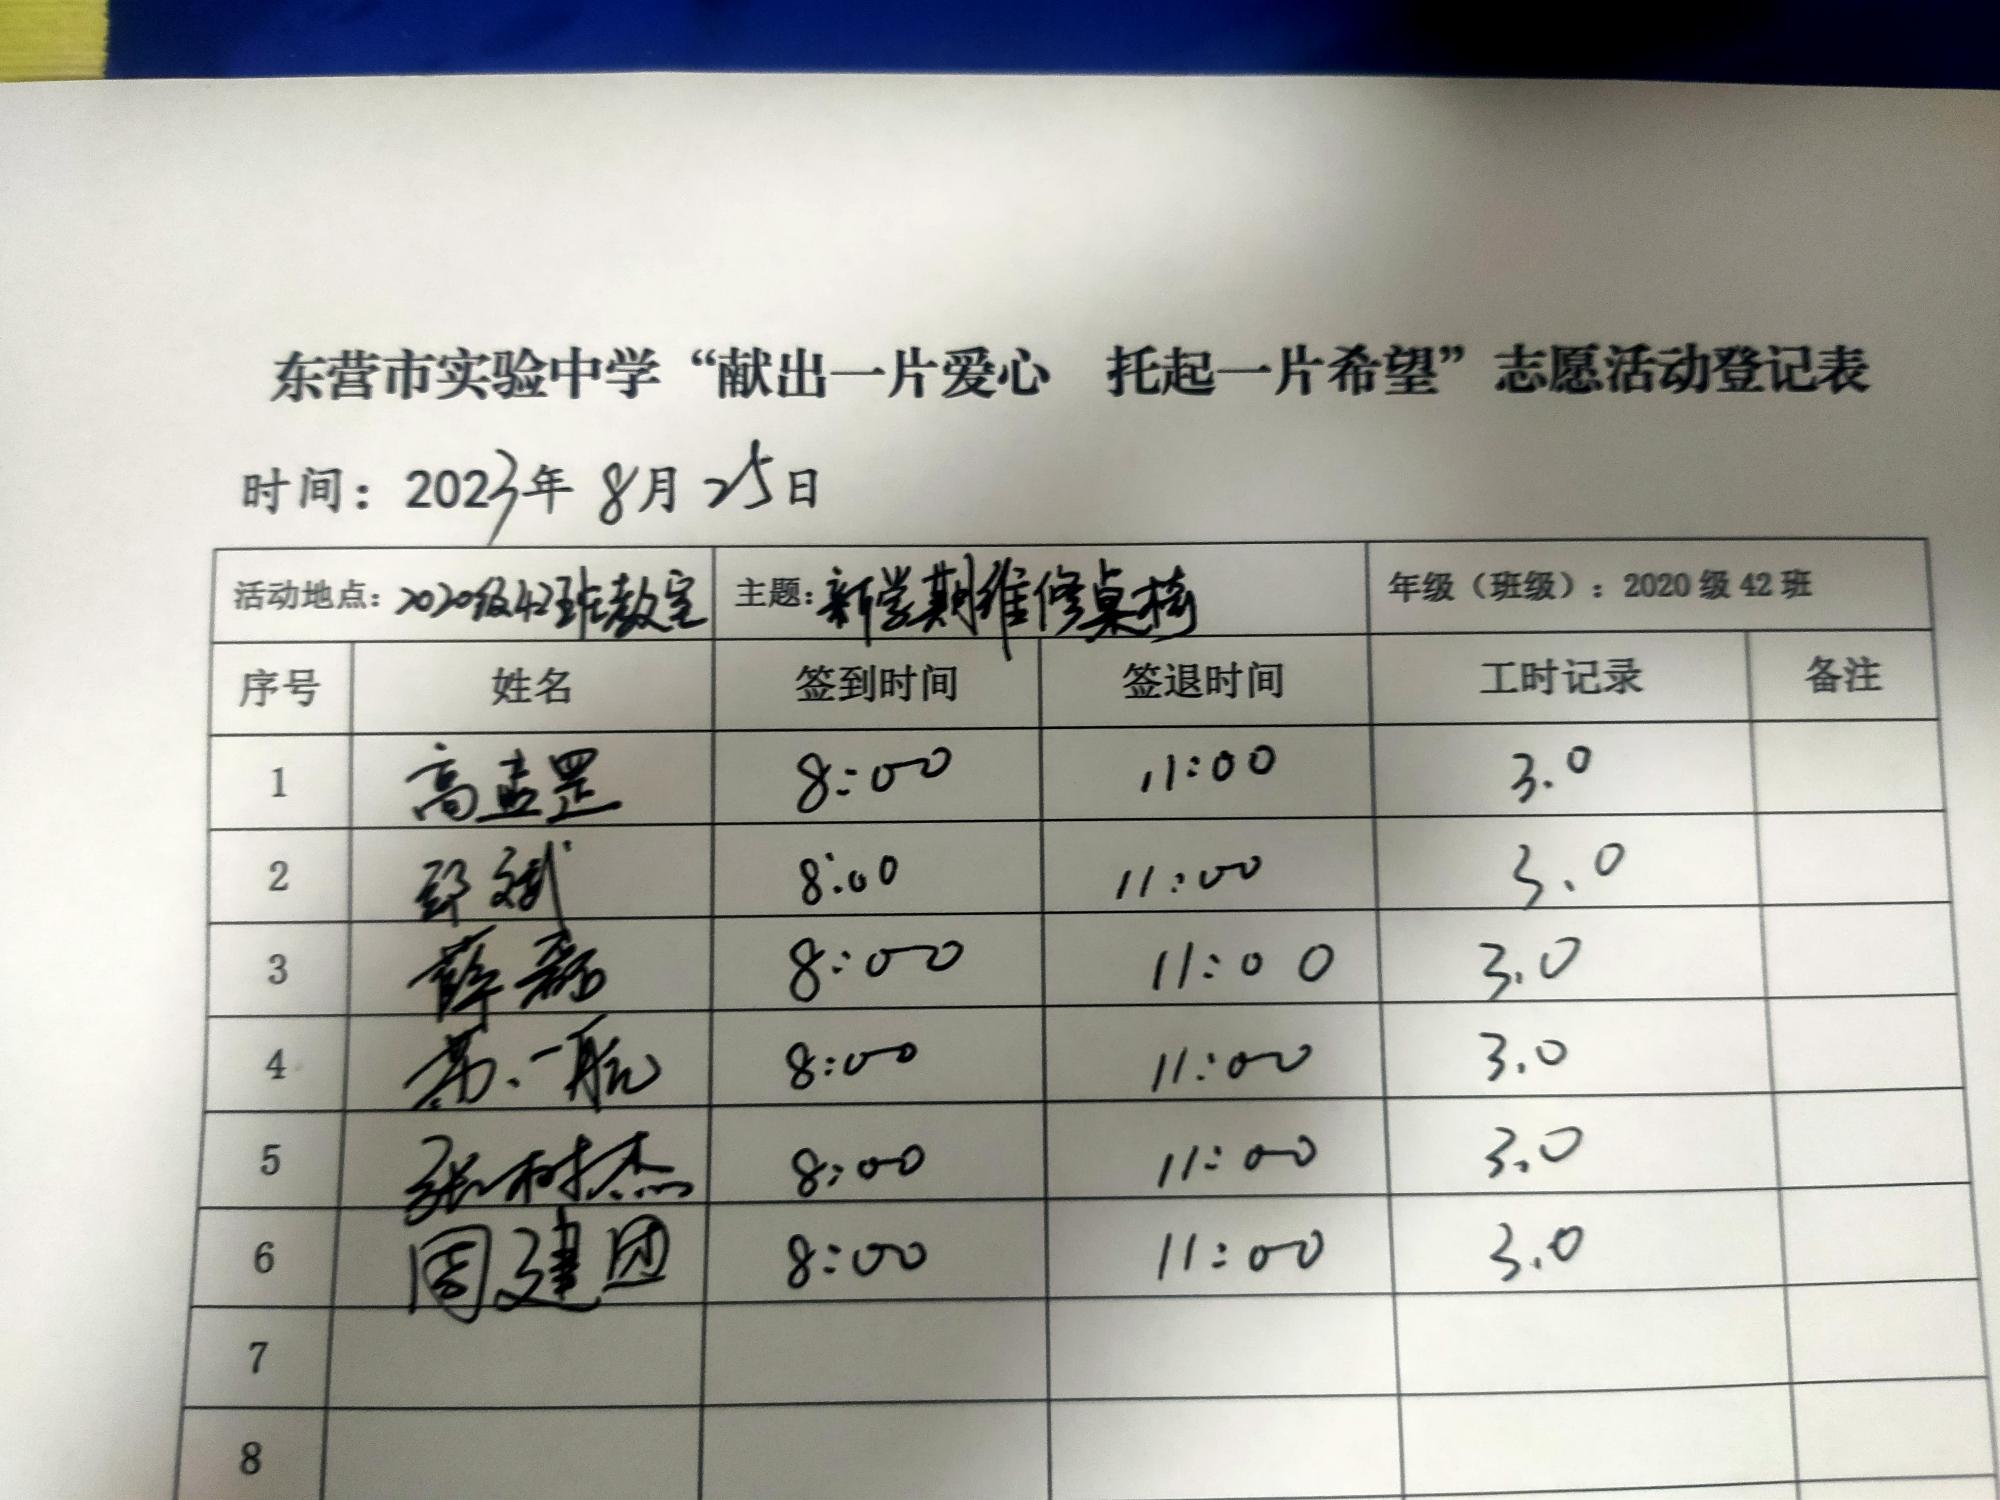 东营市实验中学“献出一片爱心 托起一片希望”志愿活动登记表
时间：2023年 8月 25日
活动地点：2020级42班教室 主题：新学期维修桌椅 年级（班级）：2020级42班
序号 姓名 签到时间 签退时间 工时记录 备注
1 高孟罡 8:00 11:00 3.0
2 邱斌 8:00 11:00 3.0
3 薛磊 8:00 11:00 3.0
4 一航 8:00 11:00 3.0
5 张树杰 8:00 11:00 3.0
6 周建团 8:00 11:00 3.0
7
8